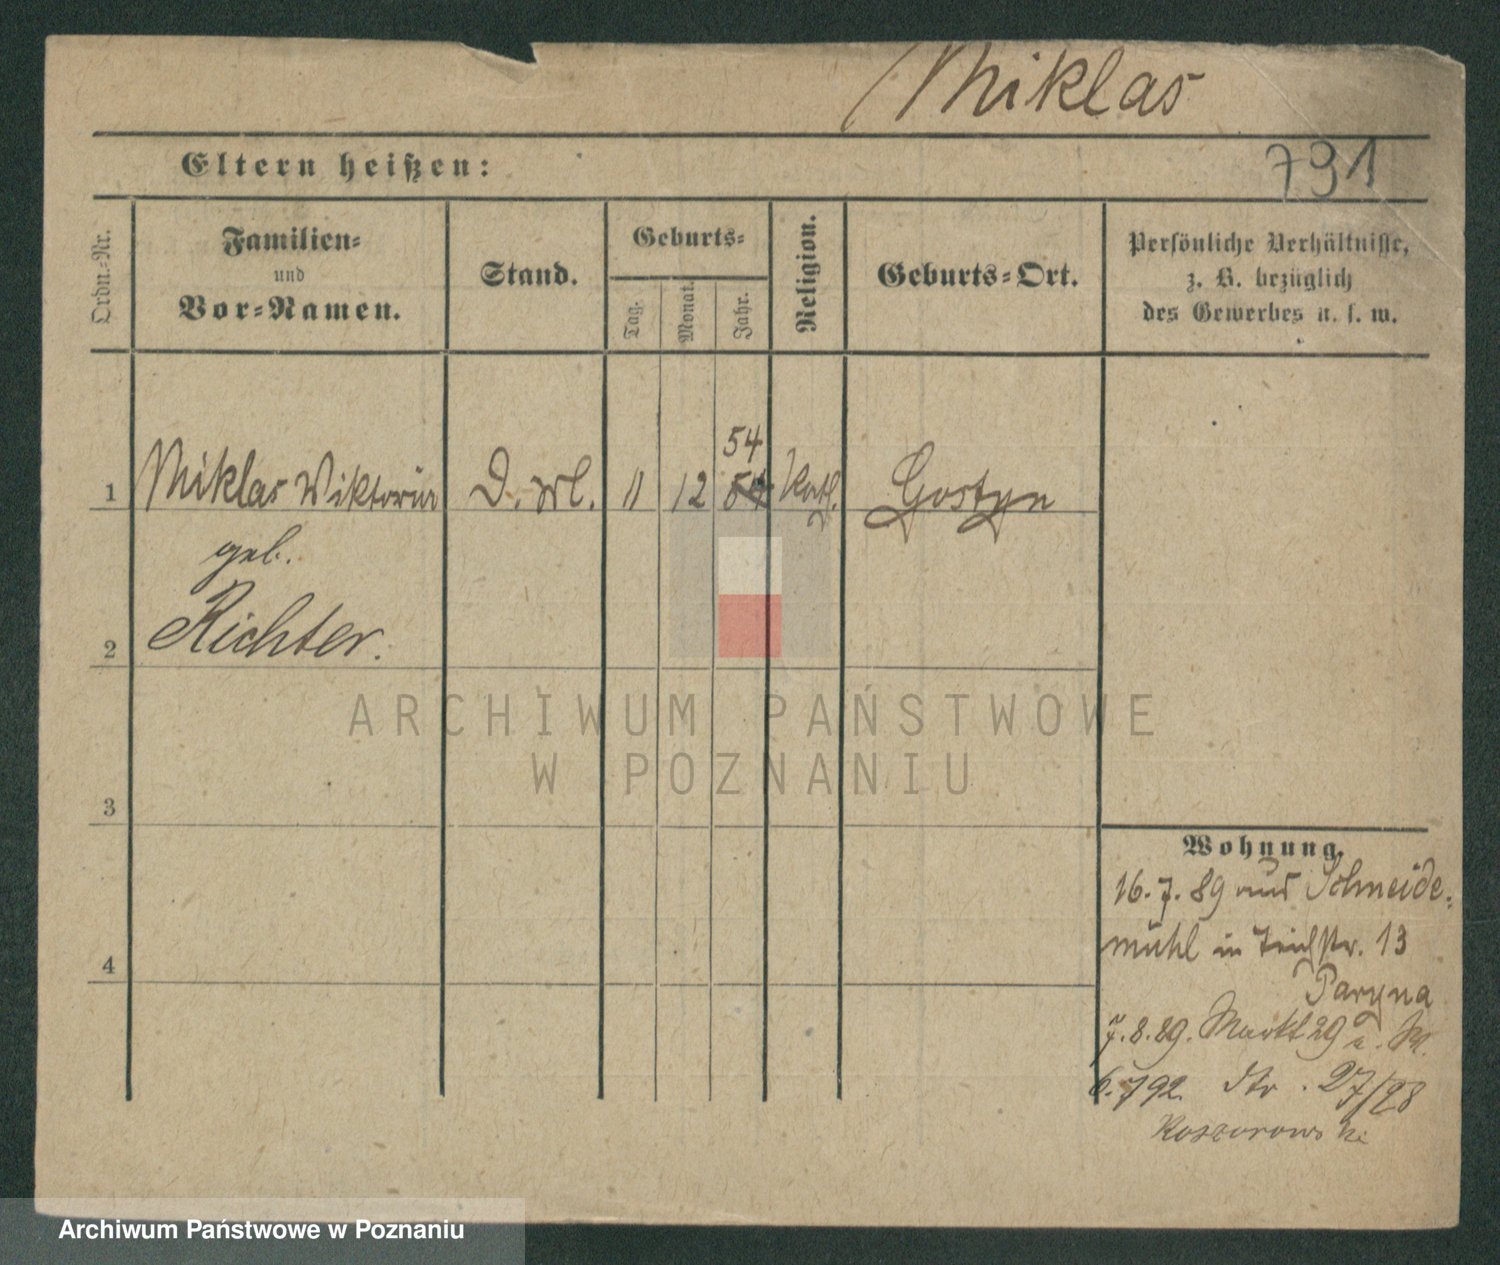 Miklas
791
Eltern heißen:
Ordn.-Nr.
Familien-
und
Vor-Namen.
Stand.
Geburts-
Tag.
Monat.
Jahr.
Religion.
Geburts-Ort.
Persönliche Verhältnisse,
z. B. bezüglich
des Gewerbes u. s. w.
54
1 Miklas Wiktoria D. 11 12 54 Kath. Gostyn
geb.
2 Richter.
3
4
Wohnung.
16.7.89 aus Schneide-
mühl in Teichstr. 13
Paryna
7.8.89. Markt 29
6.792. Str. 27/28
ARCHIWUM PAŃSTWOWE
W POZNANIU
Archiwum Państwowe w Poznaniu